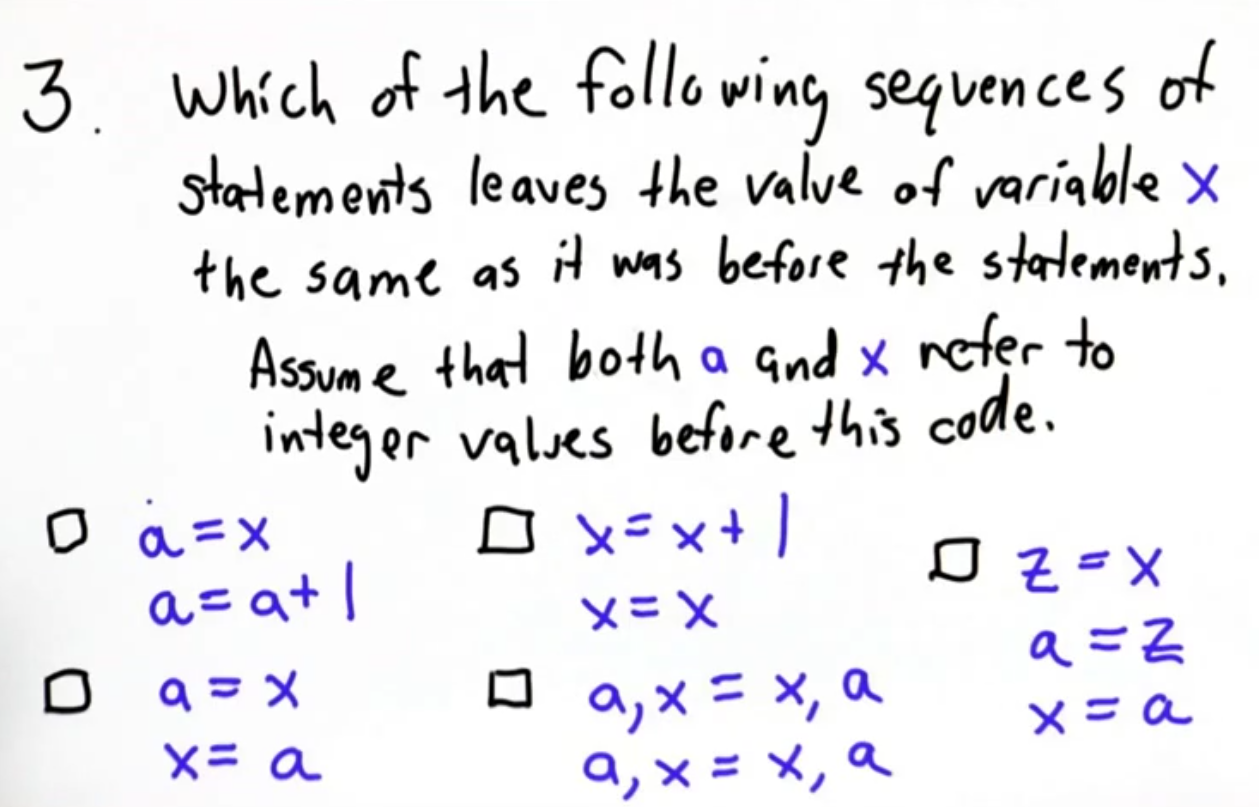 3. Which of the following sequences of
statements leaves the value of variable x
the same as it was before the statements.
Assume that both a and x refer to
integer values before this code.
a = x
a = a + 1
x = x + 1
x = x
z = x
a = z
x = a
a = x
x = a
a, x = x, a
a, x = x, a